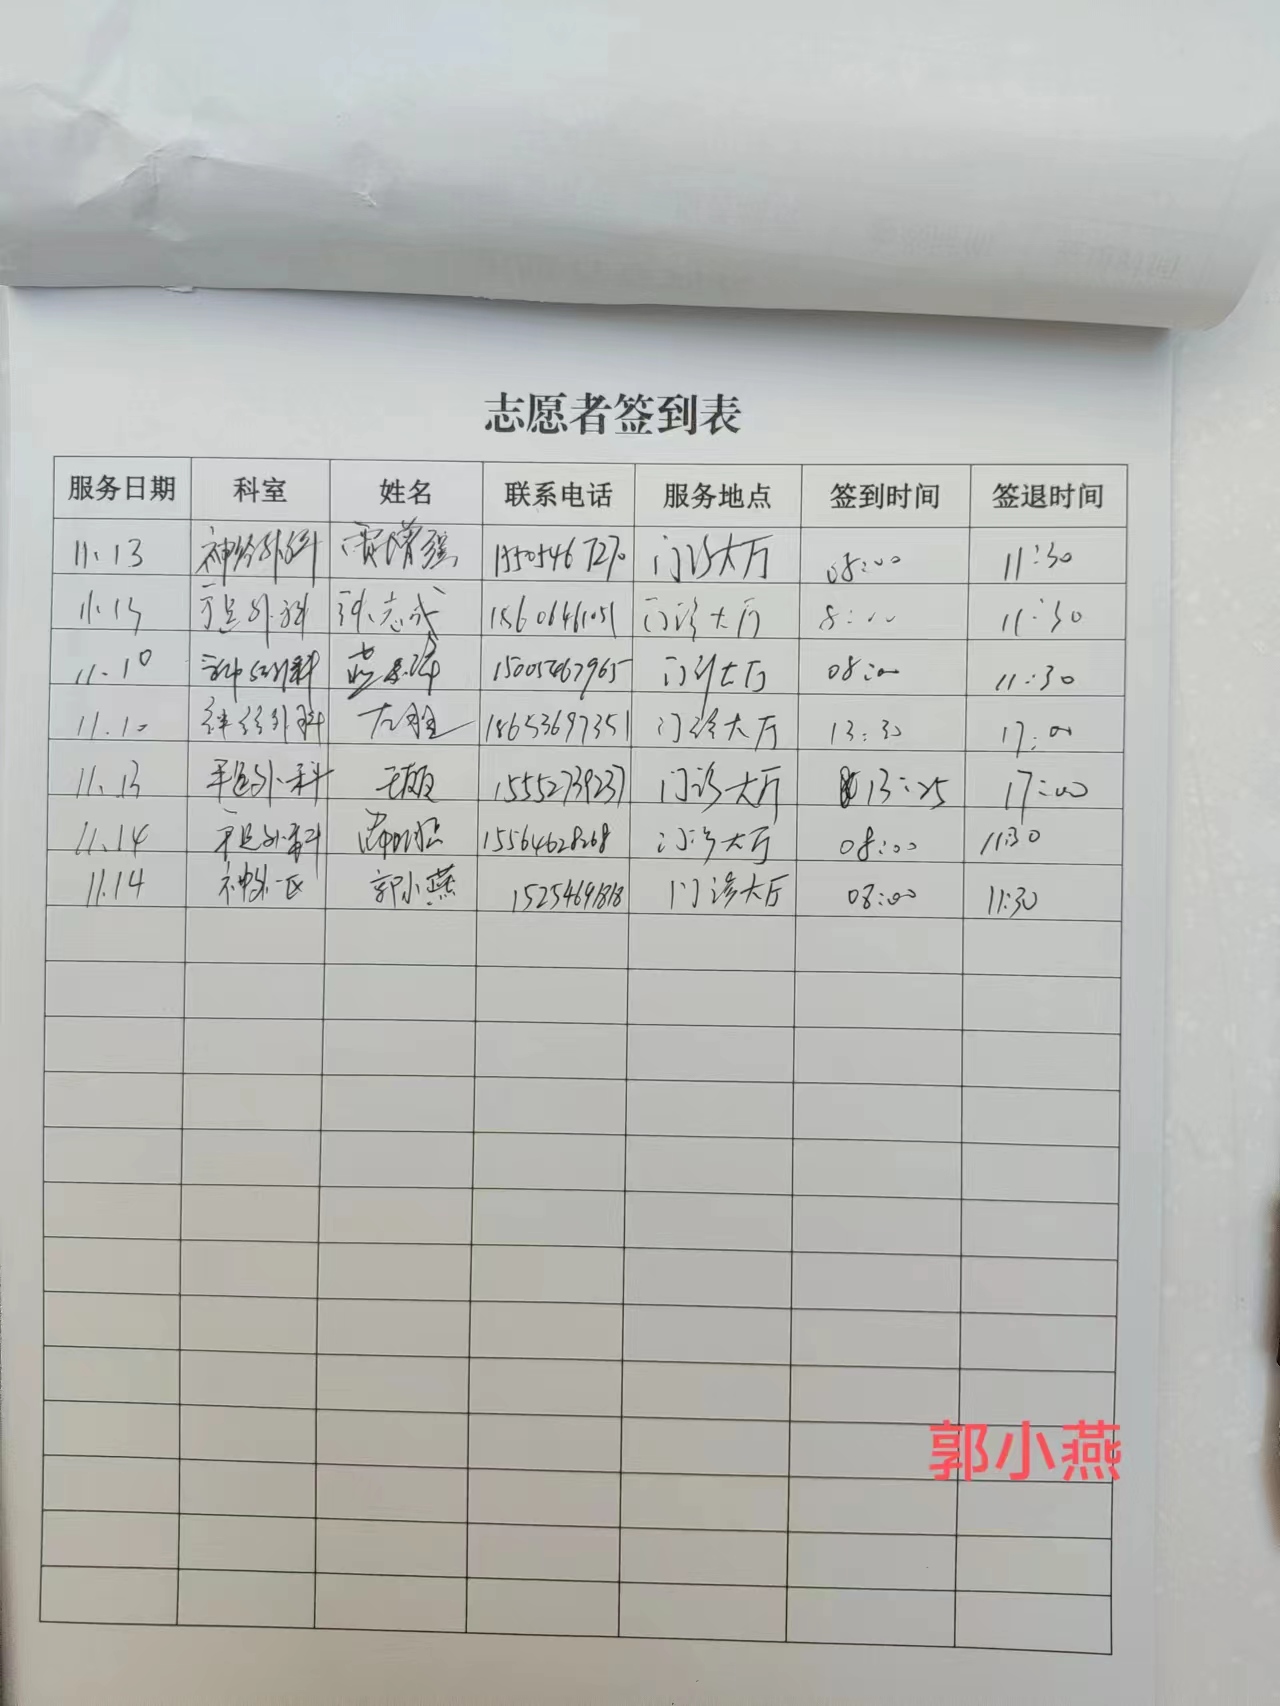 志愿者签到表
服务日期 科室 姓名 联系电话 服务地点 签到时间 签退时间
11.13 神经外科 贾增强 13505467270 门诊大厅 08:00 11:30
11.13 手足外科 张志武 18606461051 门诊大厅 8:00 11:30
11.10 神经外科 15005467965 门诊大厅 08:00 11:30
11.10 神经外科 左胜 18653697351 门诊大厅 13:30 17:00
11.13 手足外科 15552739237 门诊大厅 13:25 17:00
11.14 手足外科 15564628268 门诊大厅 08:00 11:30
11.14 神外一区 郭小燕 15254691818 门诊大厅 08:00 11:30
郭小燕